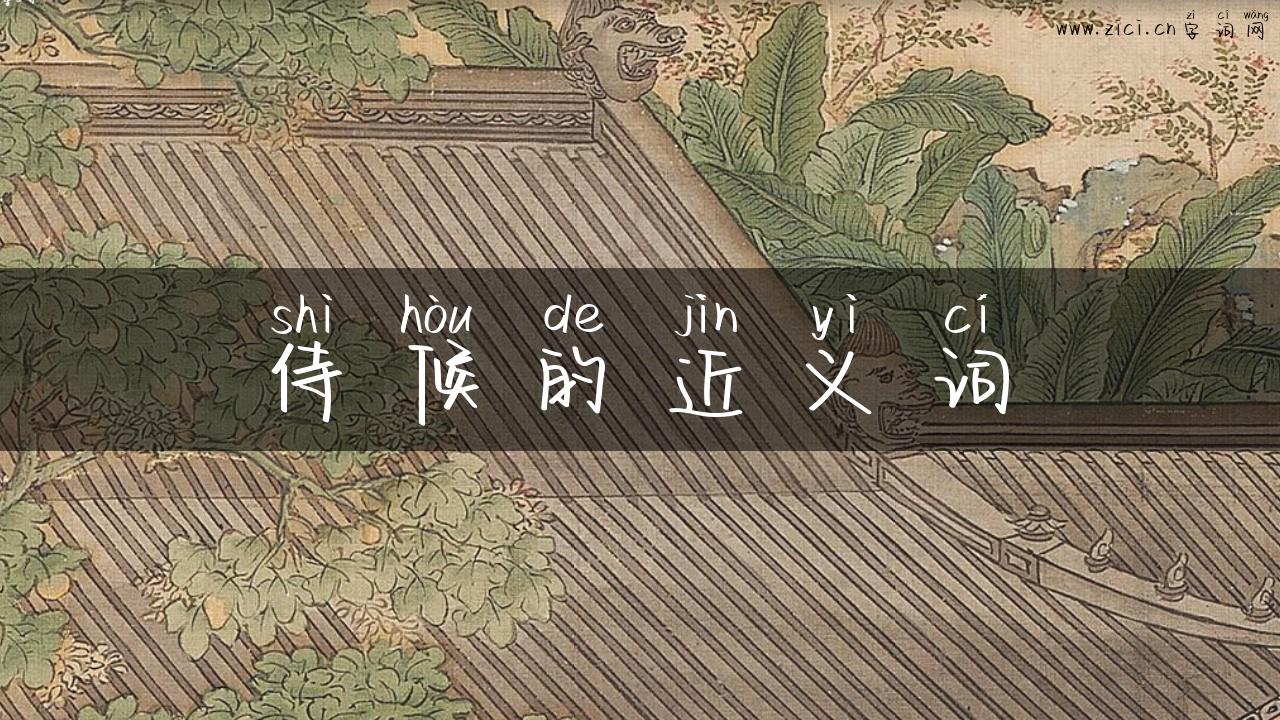 zì cí wǎng
www.zici.cn 字词网
shì hòu de jìn yì cí
侍候的近义词